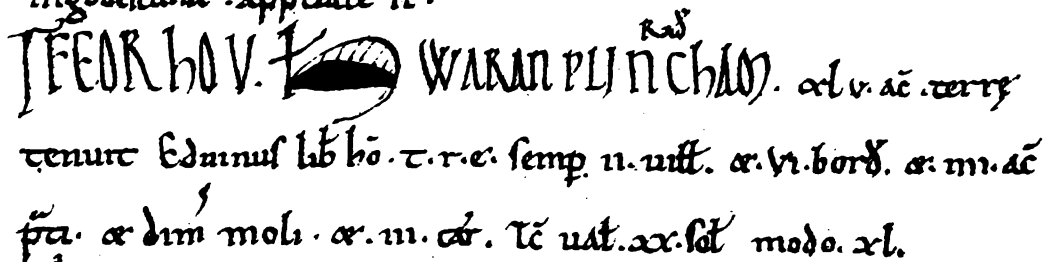 FEORHOV. T WARAN PLINCHAM. Rað xlv. ac̄. terrę
tenuit Eduinus lib̄ hō. t. r. e. semp̱ . ii. uiłł. & .vi. borđ. & . iiii. ac̄
p̄ti. & dim moli. & . iii. car̄. Tc̄ uał. xx. soł modo. xl.